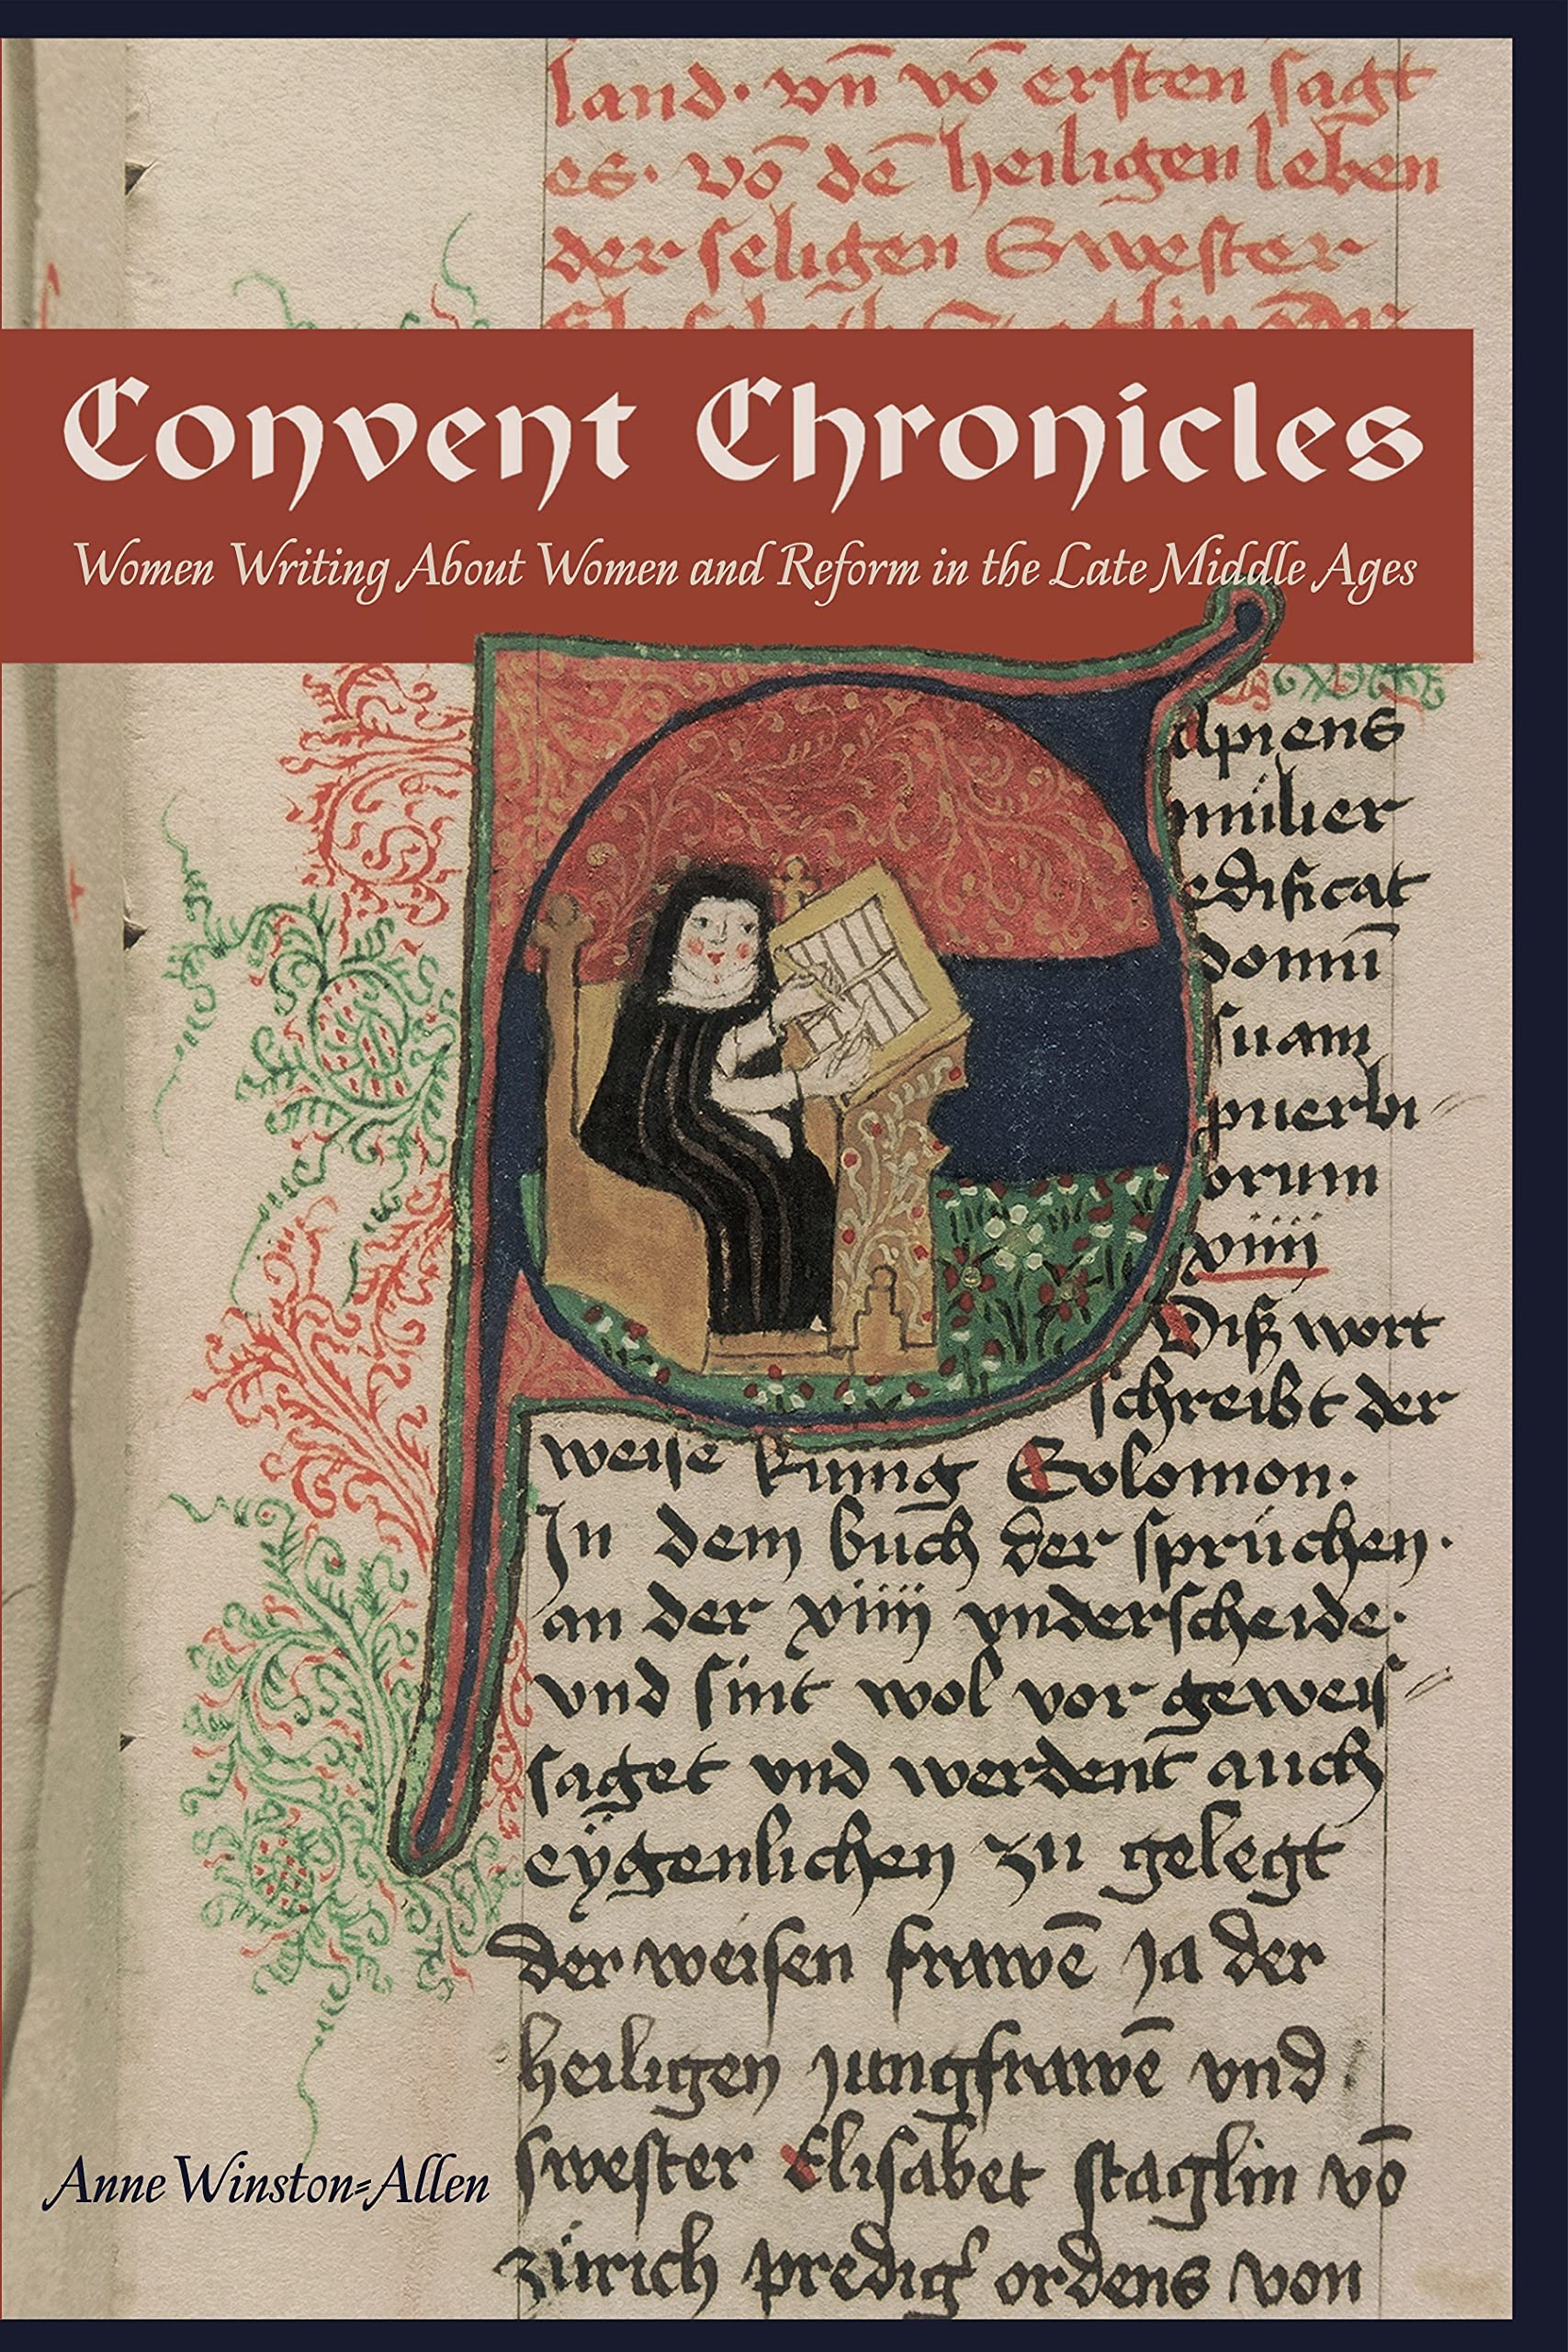 land· vn̄ vō ersten sagt
es· vō dē heiligen leben
der seligen Swester
Convent Chronicles
Women Writing About Women and Reform in the Late Middle Ages
apiens
mulier
edificat
domū
suam
puerbi
orum
xiiii
Diß wort
schreibt der
weise kunig Solomon·
In dem buch der sprüchen·
an der xiiii vnderscheide·
vnd sint wol vor geweis
saget vnd werdent auch
eÿgenlichen zu gelegt
der weisen frawē ja der
heiligen jungfrawē vnd
swester Elisabet staglin vō
zürich predig ordens von
Anne Winston-Allen